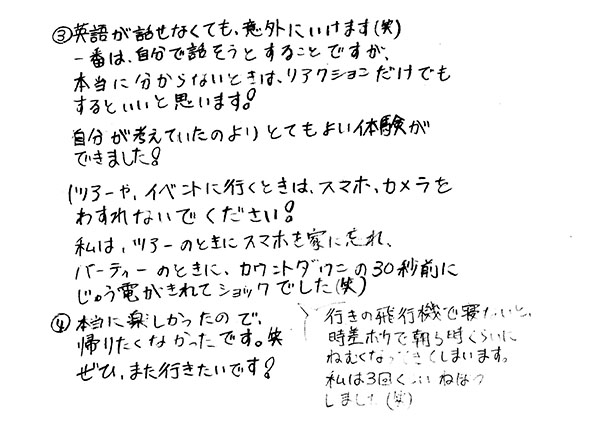 ③英語が話せなくても、意外にいけます(笑)
一番は、自分で話そうとすることですが、
本当に分からないときは、リアクションだけでも
するといいと思います!
自分が考えていたのよりとてもよい体験が
できました!
ツアーや、イベントに行くときは、スマホ、カメラを
わすれないでください!
私は、ツアーのときにスマホを家に忘れ、
パーティーのときに、カウントダウンの30秒前に
じゅう電がきれてショックでした(笑)
④本当に楽しかったので、
帰りたくなかったです。笑
ぜひ、また行きたいです!
行きの飛行機で寝ないと、
時差ボケで朝5時くらいに
ねむくなってきてしまいます。
私は3回くらいねぼう
しました(笑)